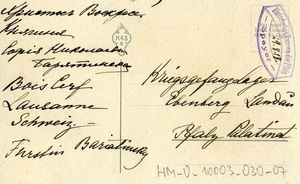 Христосъ Воскресе
Княгиня
Софія Николаевна
Барятинская
Bois Cerf
Lausanne
Schweiz
Fürstin Bariatinsky
Kriegsgefangenlager
Ebenberg Landau
Pfalz Palatinat
HM-V-10003-030-07